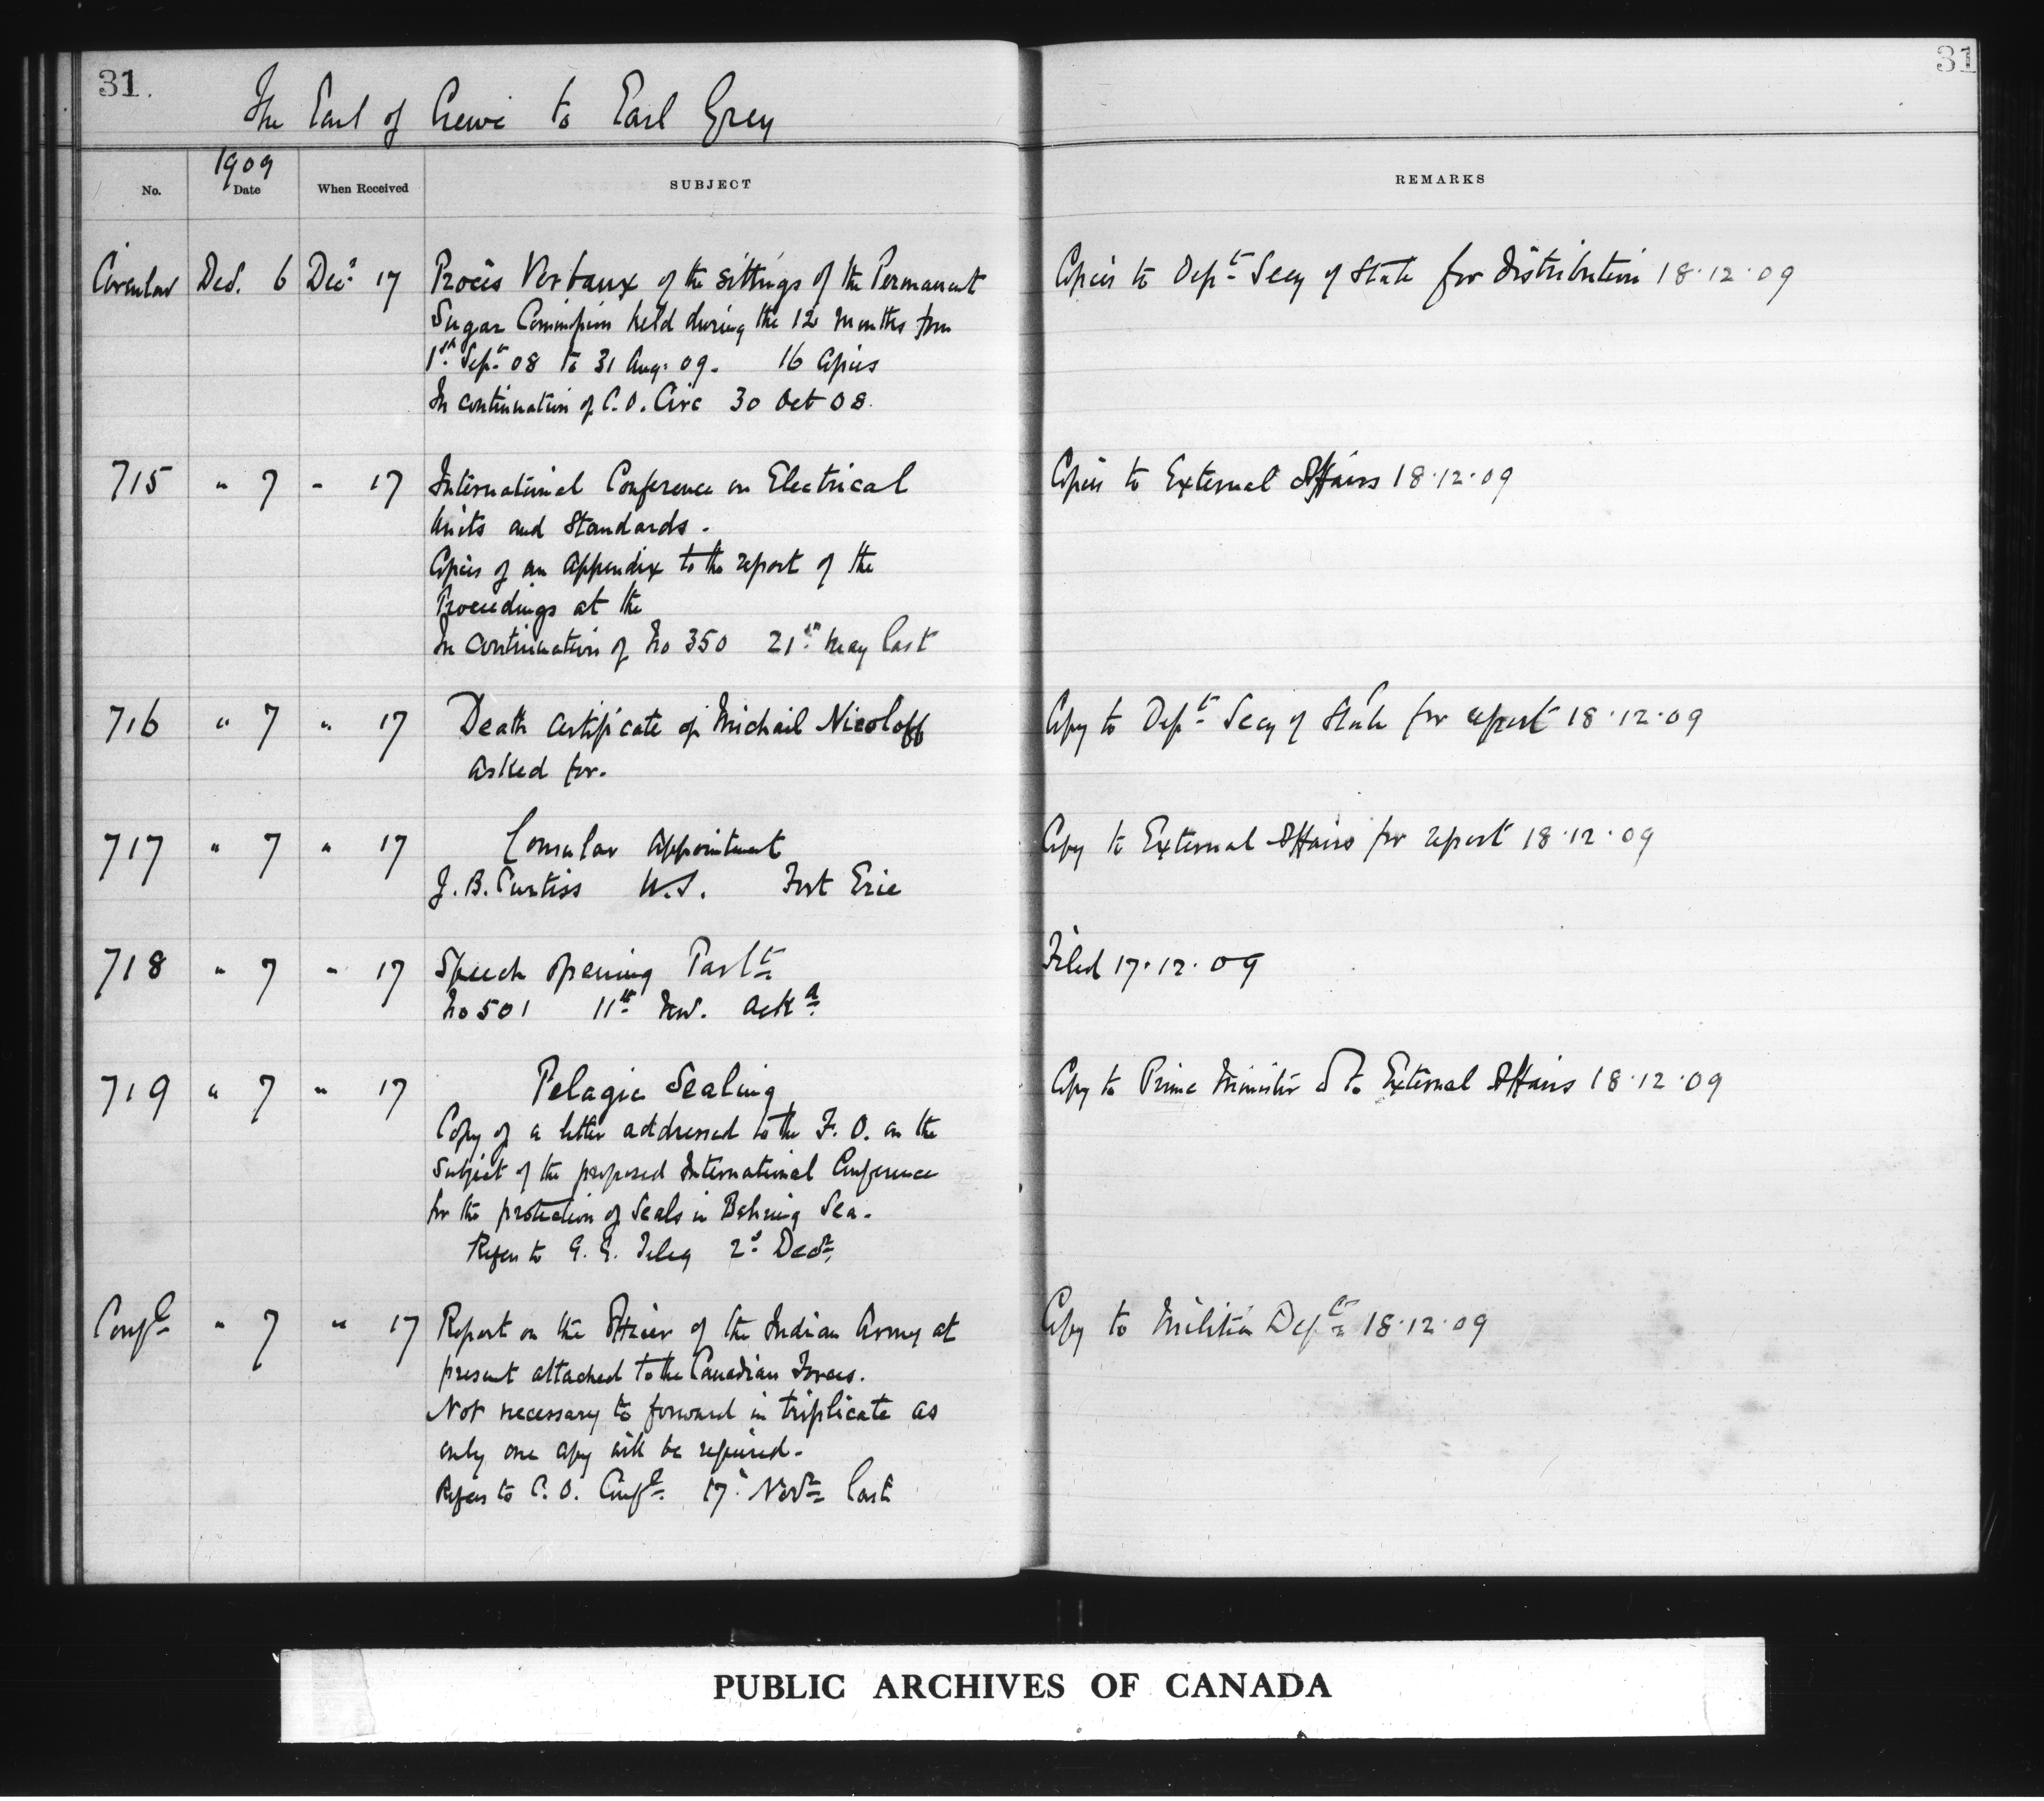 31.
31
The Earl of Crewe to Earl Grey
1909
No. Date When Received SUBJECT REMARKS
Circular Dec. 6 Decr 17 Procès Verbaux of the sittings of the Permanent Copies to Dept Secy of State for distribution 18.12.09
Sugar Commission held during the 12 months from
1st Sept 08 to 31 Aug. 09. 16 copies
In continuation of C.O. Circ 30 Oct 08.
715 " 7 " 17 International Conference on Electrical Copies to External Affairs 18.12.09
Units and Standards.
Copies of an Appendix to the report of the
Proceedings at the
In continuation of No 350 21st May last
716 " 7 " 17 Death certificate of Michail Nicoloff Copy to Dept Secy of State for report 18.12.09
asked for.
717 " 7 " 17 Consular appointment Copy to External Affairs for report 18.12.09
J.B. Curtiss U.S. Fort Erie
718 " 7 " 17 Speech opening Parlt Filed 17.12.09
No 501 11th Nov. ackd
719 " 7 " 17 Pelagic Sealing Copy to Prime Minister & to External Affairs 18.12.09
Copy of a letter addressed to the F.O. on the
subject of the proposed International Conference
for the protection of Seals in Behring Sea.
Refers to G.G. Teleg 2d Decr
Confl " 7 " 17 Report on the Officer of the Indian Army at Copy to Militia Dept 18.12.09
present attached to the Canadian Forces.
Not necessary to forward in triplicate as
only one copy will be required.
Refers to C.O. Confl. 17 Novr last
PUBLIC ARCHIVES OF CANADA